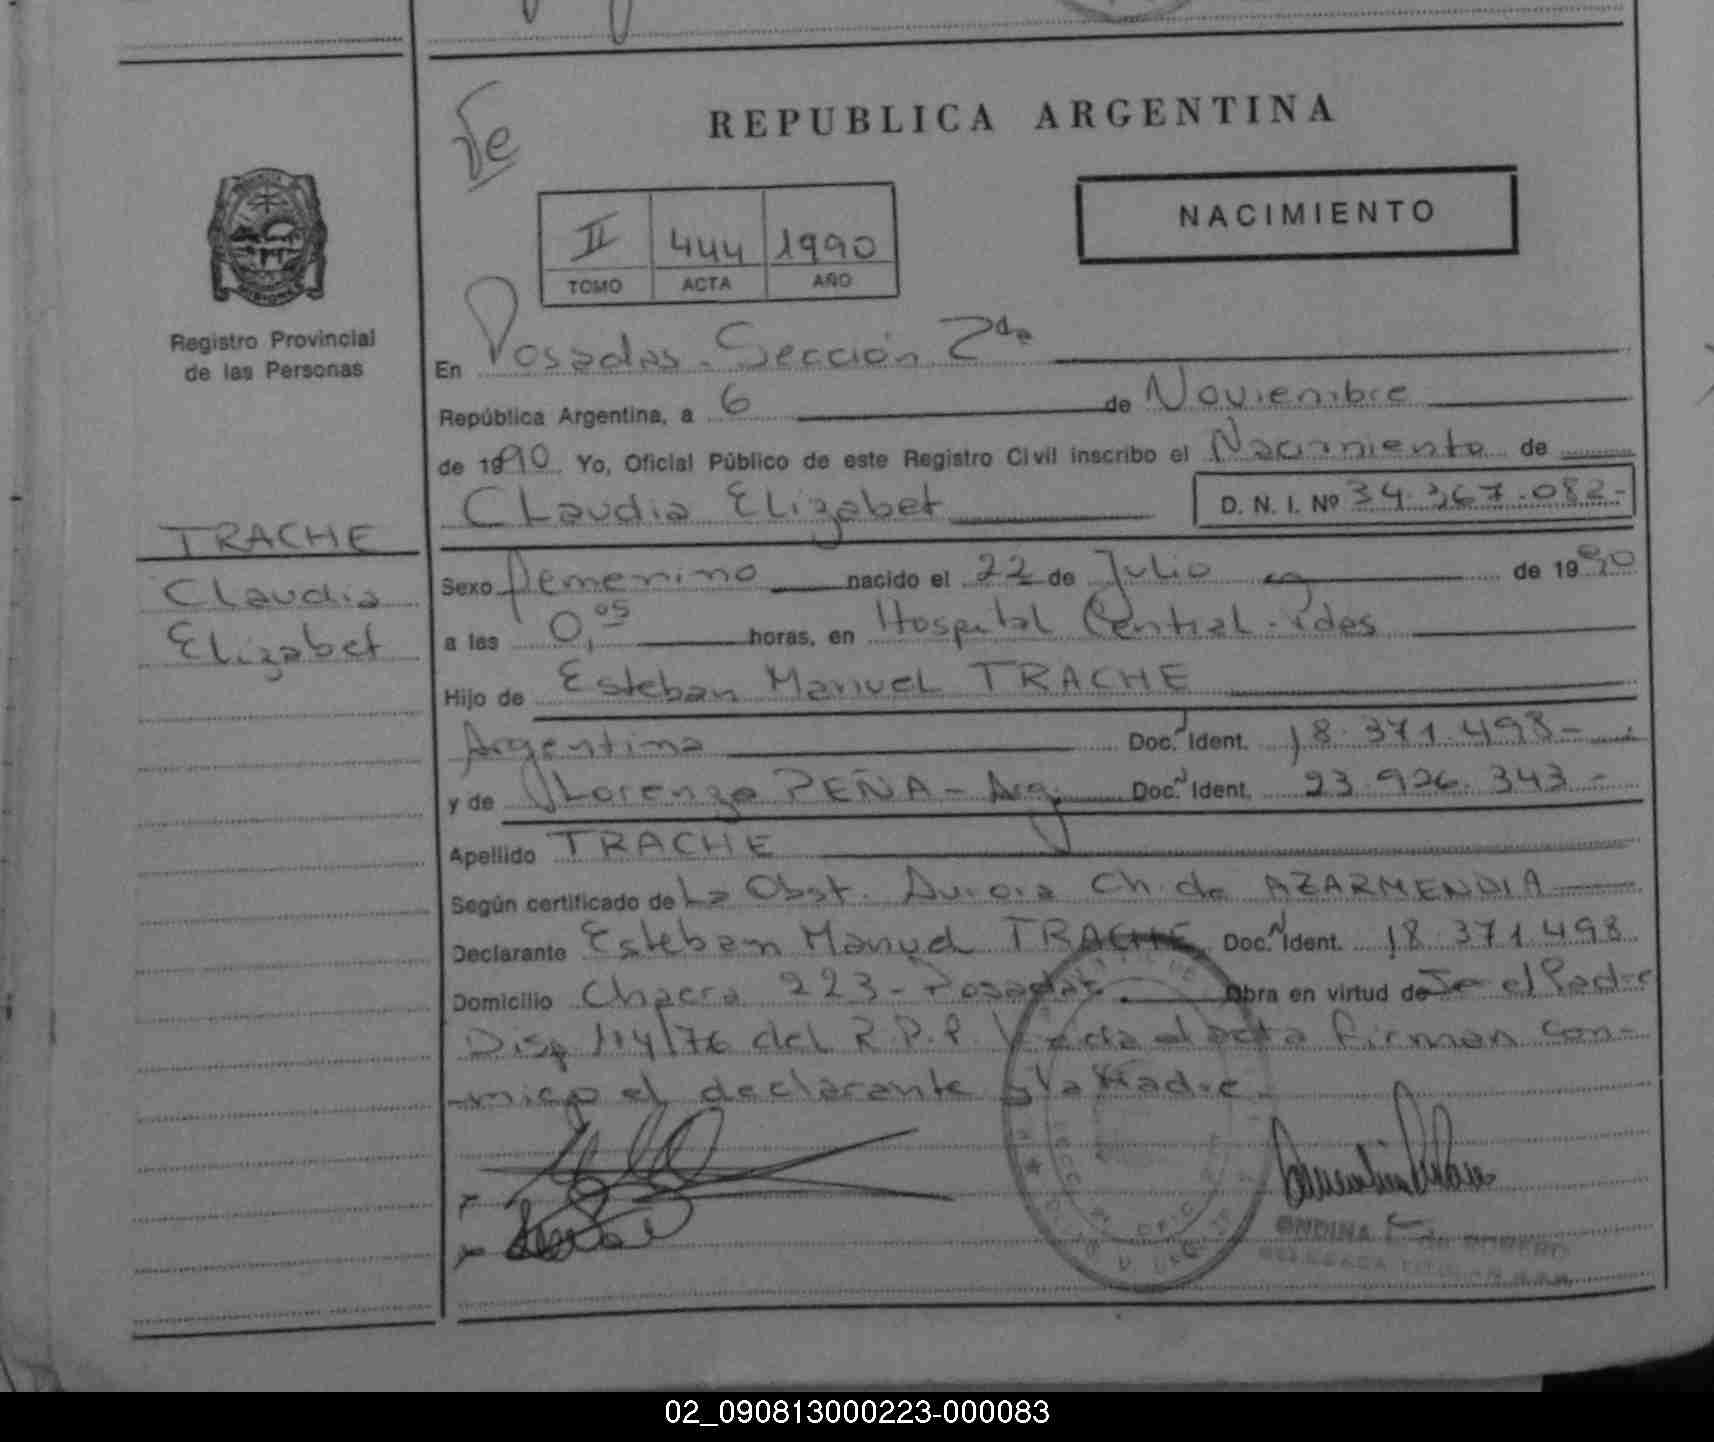 REPUBLICA ARGENTINA
NACIMIENTO
II 444 1990
TOMO ACTA AÑO
Registro Provincial
de las Personas
MISIONES
En Posadas - Sección 2da
República Argentina, a 6 de Noviembre
de 1990 Yo, Oficial Público de este Registro Civil inscribo el Nacimiento de
Claudia Elizabet D. N. I. Nº 34.367.082-
TRACHE
Claudia
Elizabet
Sexo femenino nacido el 22 de Julio de 1990
a las 0,05 horas, en Hospital Central - Pdas
Hijo de Esteban Manuel TRACHE
Argentina Doc. Ident. 18.371.498-
y de Lorenza PEÑA - Arg. Doc. Ident. 23.926.343-
Apellido TRACHE
Según certificado de La Obst. Aurora Ch. de AZARMENDIA
Declarante Esteban Manuel TRACHE Doc. Ident. 18.371.498
Domicilio Chacra 223 - Posadas Obra en virtud de Se el Padre
Disp 114/76 del R.P.P. el acta firman con-
migo el declarante y la Madre -
ONDINA de ROMERO
02_090813000223-000083